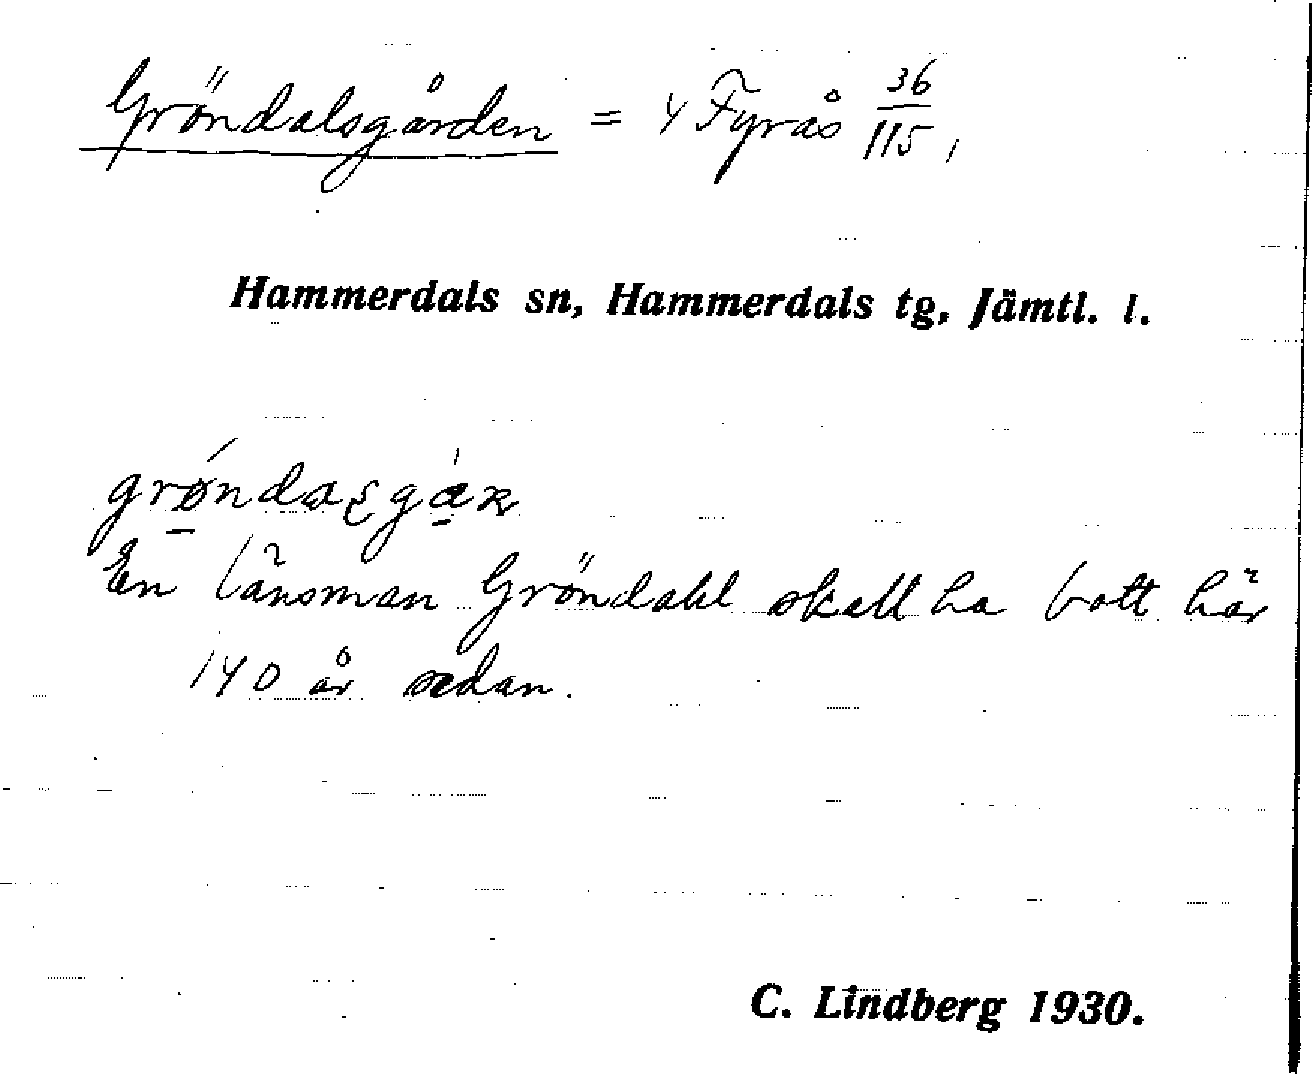 Gröndalsgården = 4 Fyrås 36/115,
Hammerdals sn, Hammerdals tg, Jämtl. l.
En länsman Gröndahl skall ha bott här
140 år sedan.
C. Lindberg 1930.